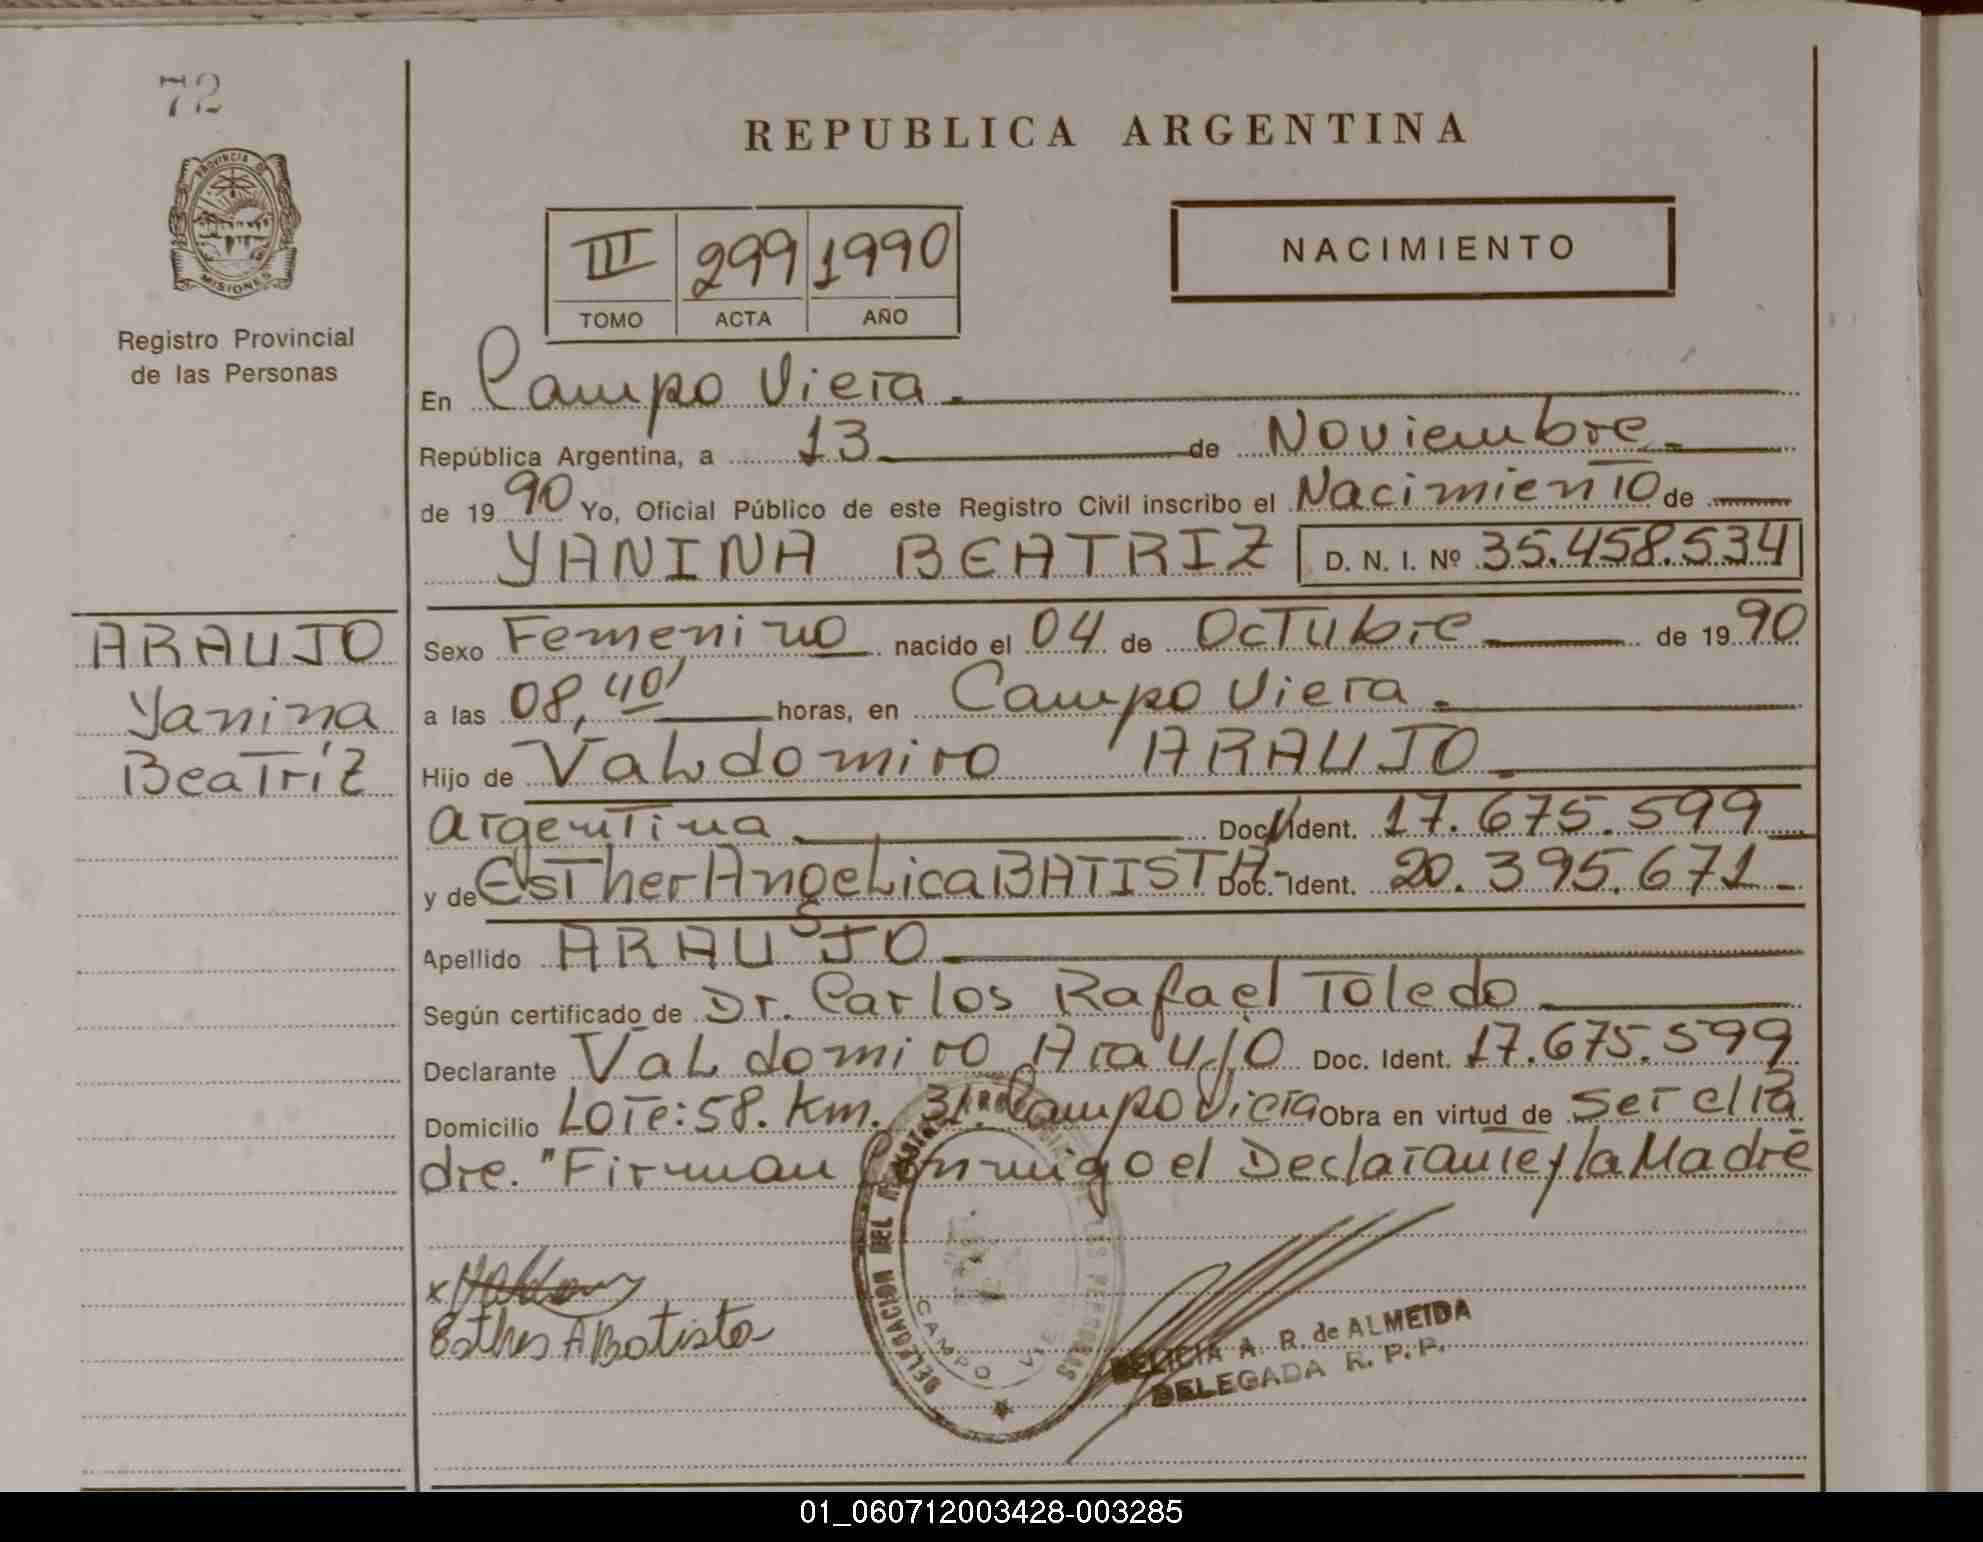 72
PROVINCIA DE
MISIONES
Registro Provincial
de las Personas
ARAUJO
Yanina
Beatríz
REPUBLICA ARGENTINA
III 299 1990
TOMO ACTA AÑO
NACIMIENTO
En Campo Viera.
República Argentina, a 13 de Noviembre.
de 1990 Yo, Oficial Público de este Registro Civil inscribo el Nacimiento de
YANINA BEATRIZ D. N. I. Nº 35.458.534
Sexo Femenino nacido el 04 de Octubre de 1990
a las 08,40' horas, en Campo Viera.
Hijo de Valdomiro ARAUJO
argentina. Doc. Ident. 17.675.599
y de Esther Angelica BATISTA- Doc. Ident. 20.395.671-
Apellido ARAUJO
Según certificado de Dr. Carlos Rafael Toledo
Declarante Valdomiro Araujo Doc. Ident. 17.675.599
Domicilio Lote:58. Km. 31. Campo Viera Obra en virtud de ser el Pa
dre. "Firman Conmigo el Declarante y la Madre
x
Esther A Batista
DELEGACION DEL
LAS PERSONAS
CAMPO VIE
FELICIA A. R. de ALMEIDA
DELEGADA R. P. P.
01_060712003428-003285